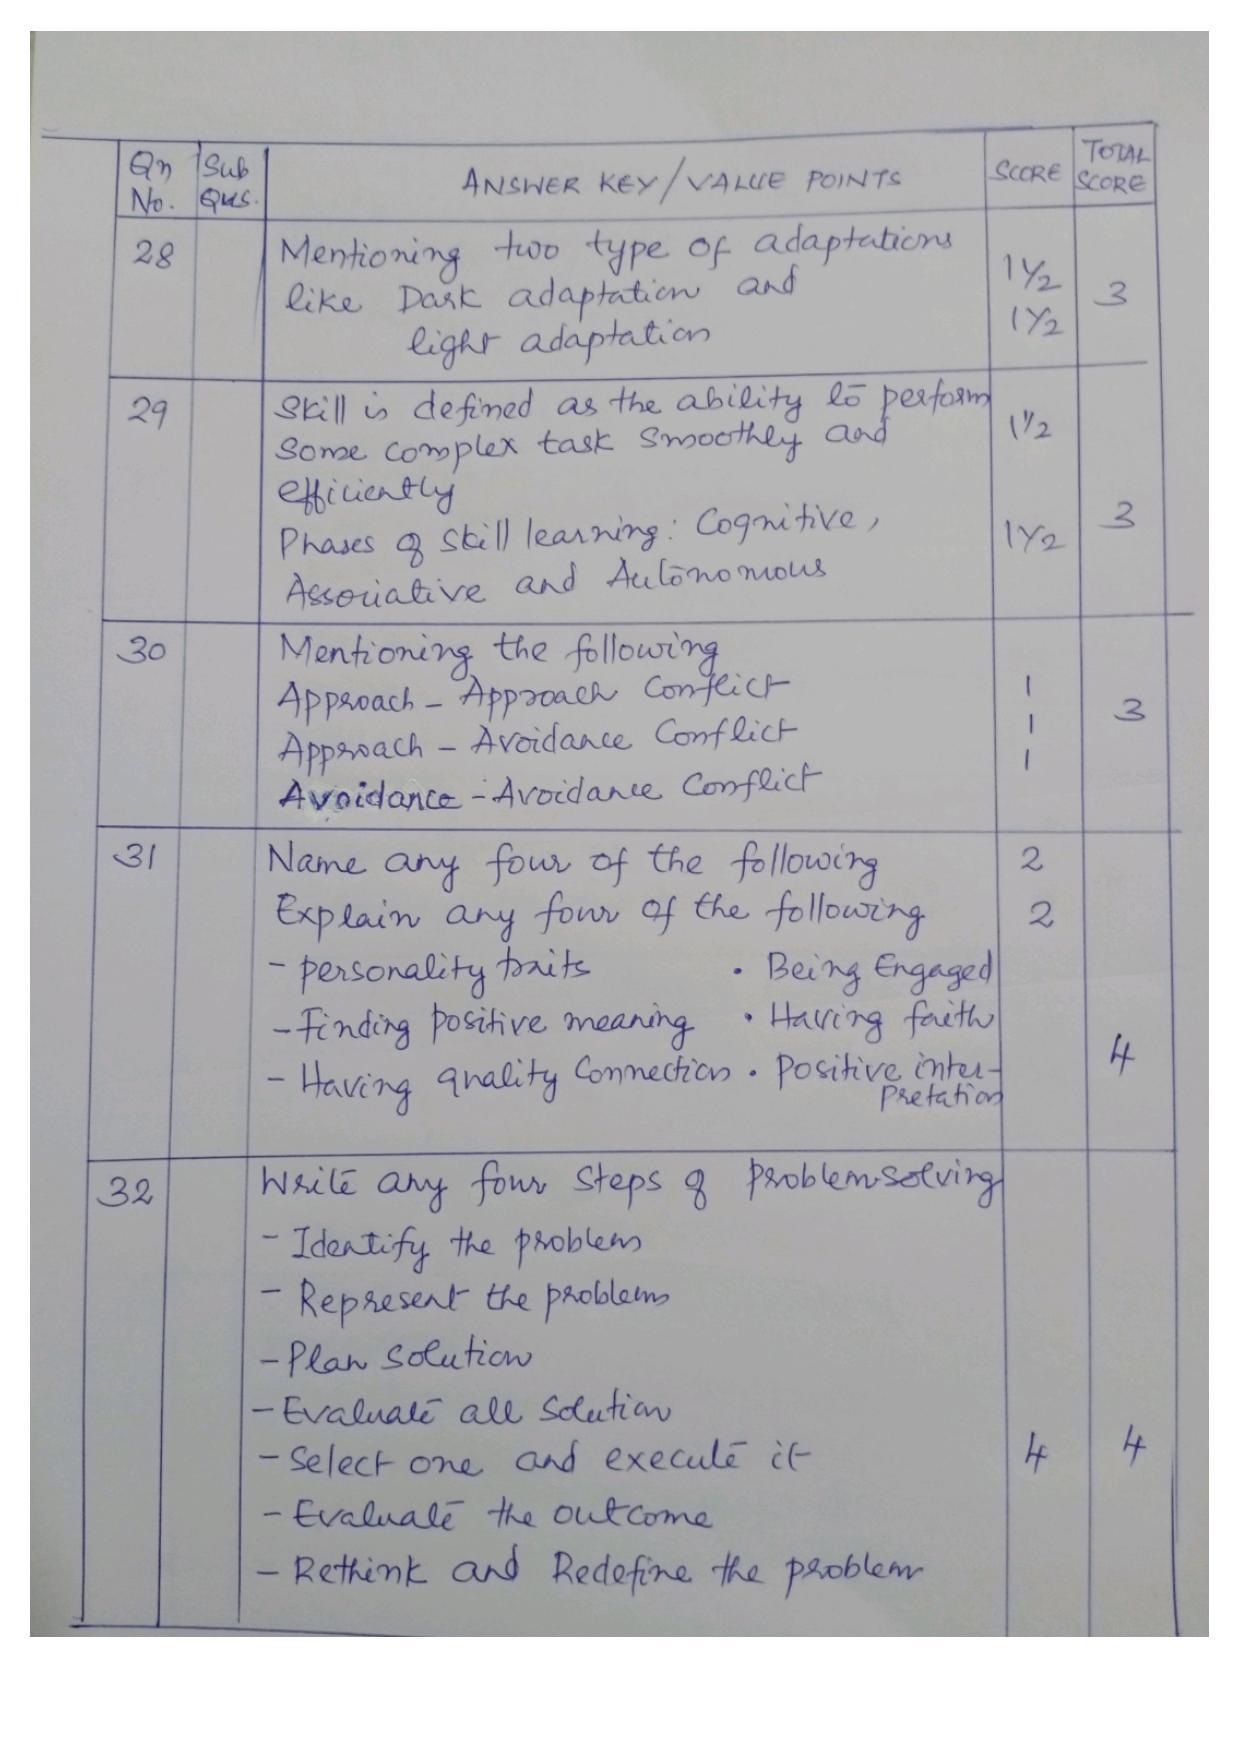 Qn No. Sub Qus. ANSWER KEY/VALUE POINTS SCORE TOTAL SCORE
28 Mentioning two type of adaptations
like Dark adaptation and 1½ 3
light adaptation 1½
29 Skill is defined as the ability to perform
Some complex task Smoothly and 1½
efficiently
Phases of Skill learning: Cognitive, 1½ 3
Associative and Autonomous
30 Mentioning the following
Approach - Approach Conflict 1
Approach - Avoidance Conflict 1 3
Avoidance - Avoidance Conflict 1
31 Name any four of the following 2
Explain any four of the following 2
- personality traits • Being Engaged
- Finding positive meaning • Having faith
- Having quality Connection • Positive inter- 4
pretation
32 Write any four Steps of problem solving
- Identify the problem
- Represent the problem
- Plan Solution
- Evaluate all Solution
- Select one and execute it 4 4
- Evaluate the outcome
- Rethink and Redefine the problem